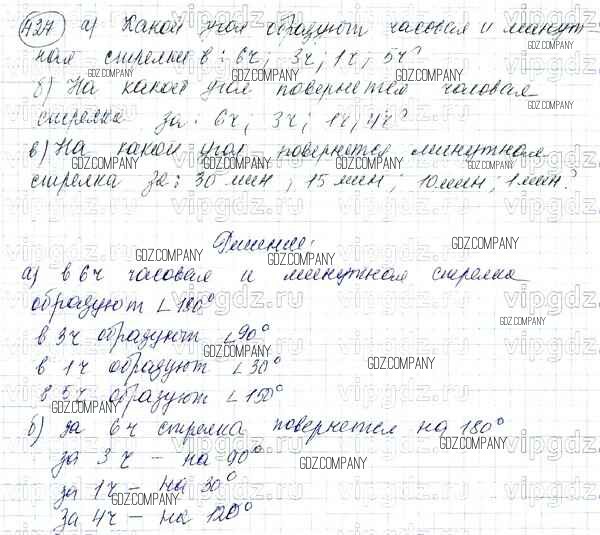 427 а) Какой угол образуют часовая и минут
ная стрелки в: 6ч; 3ч; 1ч; 5ч?
б) На какой угол повернется часовая
стрелка за: 6ч; 3ч; 1ч; 4ч?
в) На какой угол повернется минутная
стрелка за: 30 мин; 15 мин; 10 мин; 1 мин?
Решение:
а) в 6ч часовая и минутная стрелка
образуют ∠180°
в 3ч образуют ∠90°
в 1ч образуют ∠30°
в 5ч образуют ∠150°
б) за 6ч стрелка повернется на 180°
за 3ч – на 90°
за 1ч – на 30°
за 4ч – на 120°
GDZ.COMPANY
vipgdz.ru